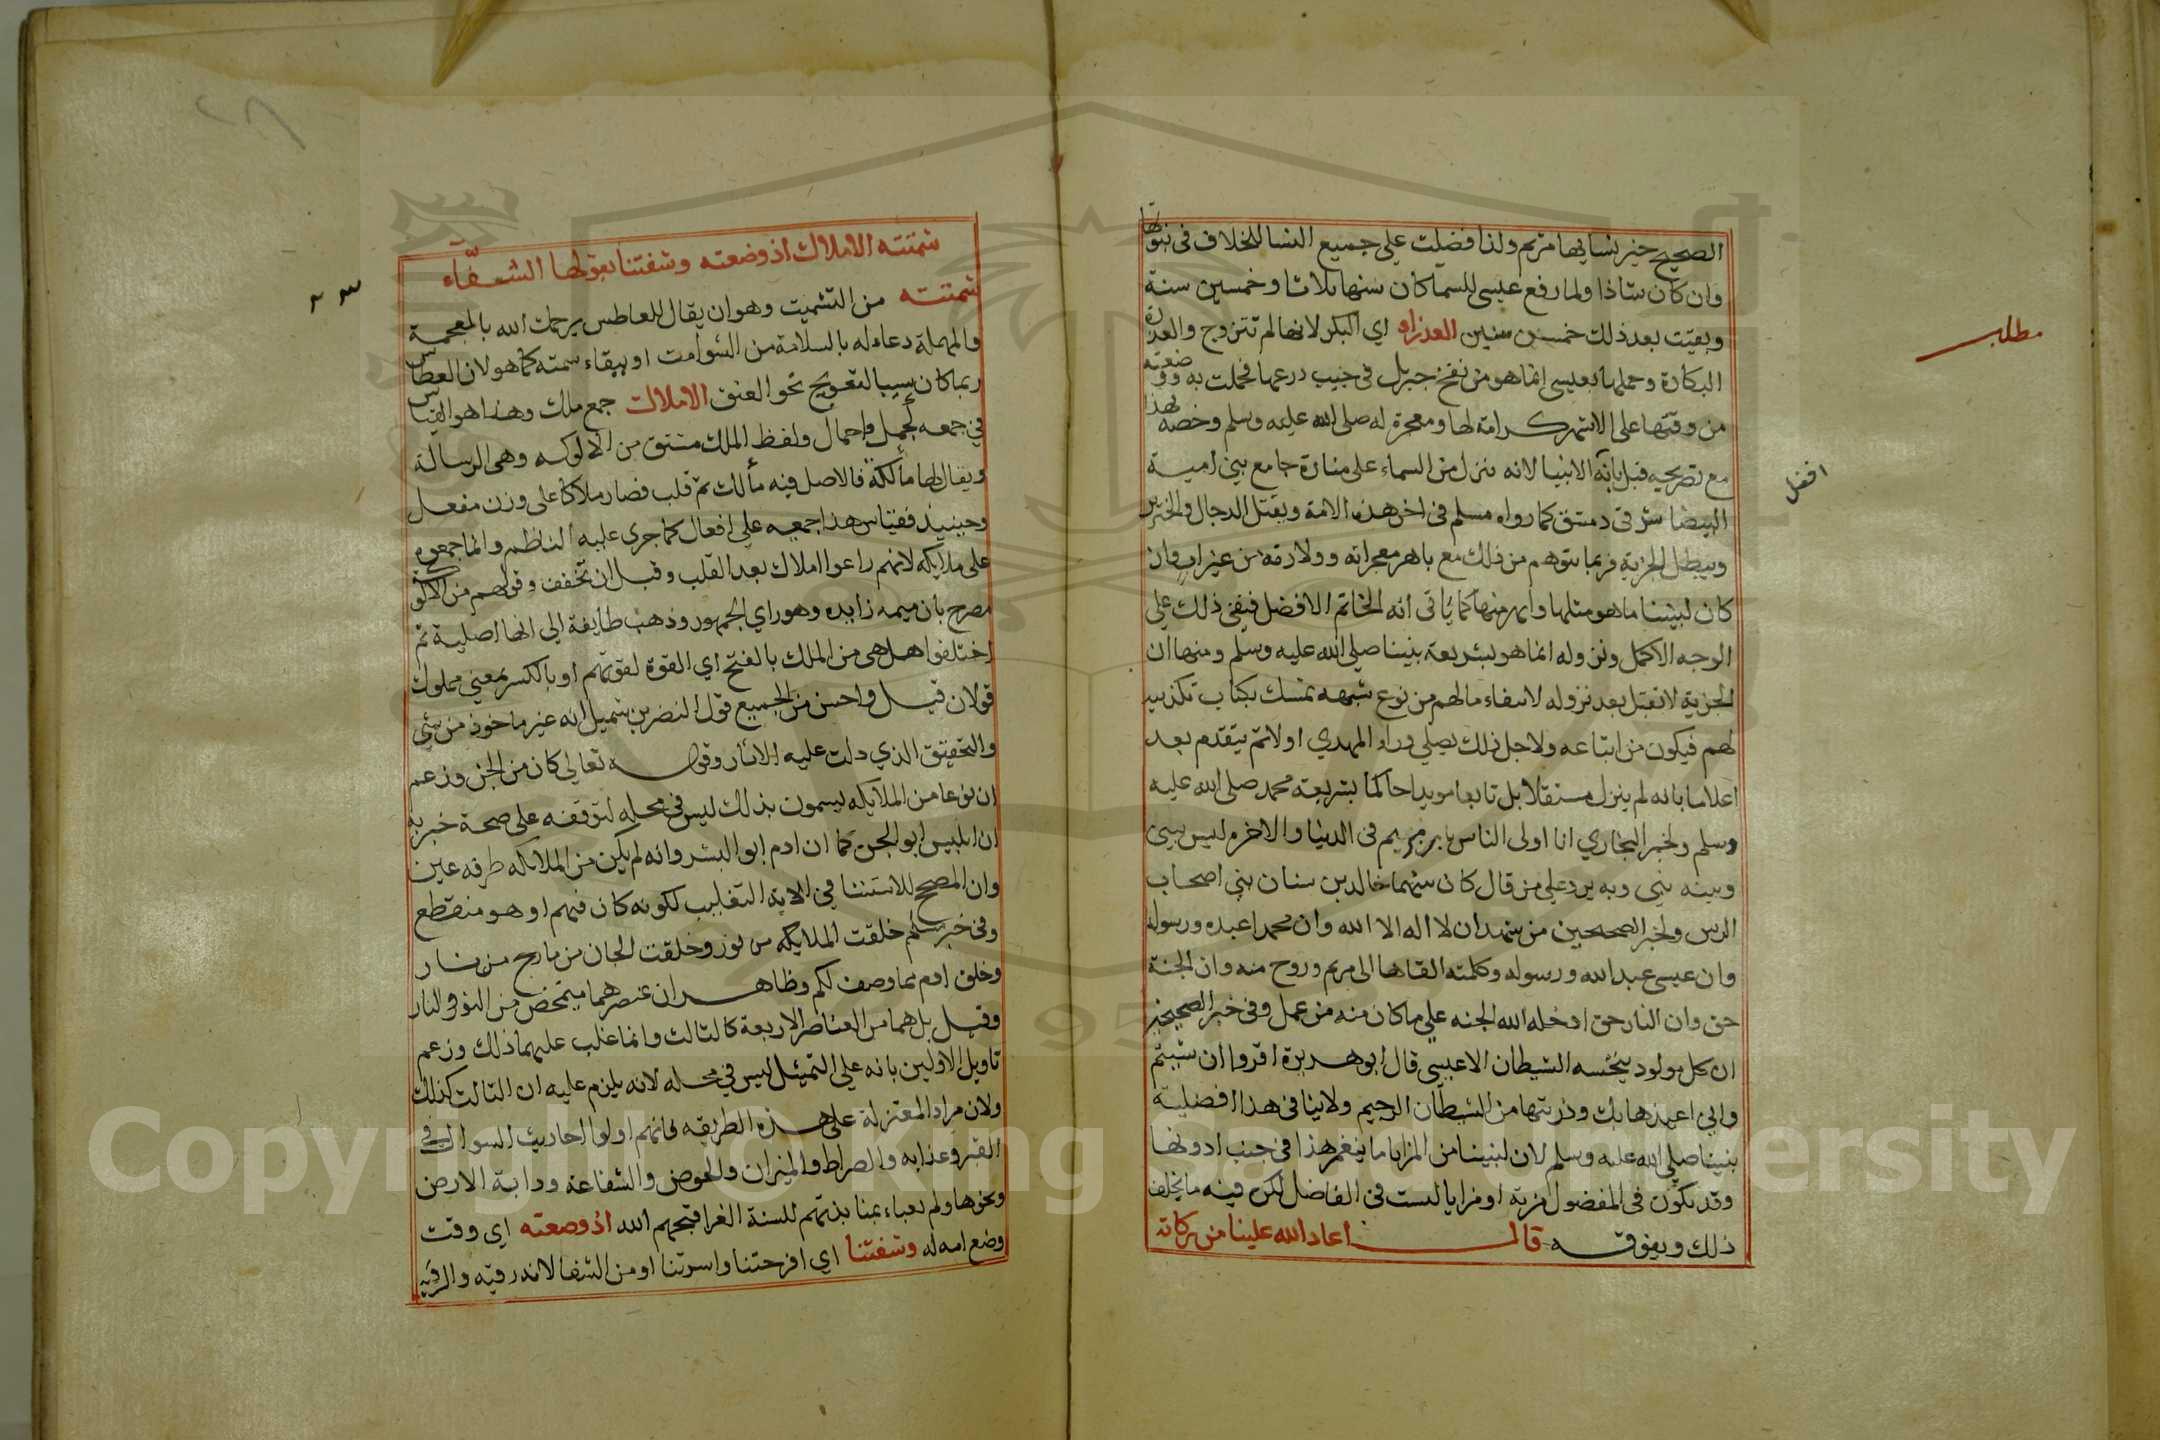 الصحيح خير نسائها مريم ولذا فضلت على جميع النسا للخلاف في نبوتها
وان كان شاذا ولما رفع عيسى للسما كان سنها ثلاثا وخمسين سنة
وبقيت بعد ذلك خمسن سنين العذراء اي البكر لانها لم تتزوج والعذرة
البكارة وحملها بعيسى انما هو من نفخ جبريل في جيب درعها فحملت به ووضعته
من وقتها على الاشهر كرامة لها ومعجزة له صلى الله عليه وسلم وخصه بهذا
مع تصريحه قبل بانه الانبيا لانه ينزل من السماء على منارة جامع بني امية
افضل
مطلب
البيضا شرقي دمشق كما رواه مسلم في اخر هذه الامة ويقتل الدجال والخنزير
ويبطل الجزية فربما يتوهم من ذلك مع باهر معجزاته وولادته من غير اب وان
كان لنبينا ما هو مثلها وابهر منها كما ياتي انه الخاتم الافضل فيفي ذلك على
الوجه الاكمل ونزوله انما هو بشريعة نبينا صلى الله عليه وسلم ومنها ان
الجزية لا تقبل بعد نزوله لانتفاء مالهم من نوع شبهه تمسك بكتاب تكذيبه
لهم فيكون من اتباعه ولاجل ذلك يصلي وراء المهدي اولا ثم يتقدم بعد
اعلاما بانه لم ينزل مستقلا بل تابعا مويدا حاكما بشريعة محمد صلى الله عليه
وسلم ولخبر البخاري انا اولى الناس بابن مريم في الدنيا والاخرة ليس بيني
وبينه نبي وبه يرد على من قال كان بينهما خالد بن سنان نبي اصحاب
الرس ولخبر الصحيحين من شهد ان لا اله الا الله وان محمدا عبده ورسوله
وان عيسى عبد الله ورسوله وكلمته القاها الى مريم وروح منه وان الجنة
حق وان النار حق ادخله الله الجنه على ما كان منه من عمل وفي خبر الصحيحين
ان كل مولود ينخسه الشيطان الا عيسى قال ابو هريرة اقروا ان شيتم
واني اعيذها بك وذريتها من الشيطان الرجيم ولا ينافي هذا افضلية
نبينا صلى الله عليه وسلم لان لنبينا من المزايا ما ينغمر هذا في جنب ادونها
وقد يكون في المفضول مزية او مزايا ليست في الفاضل لكن فيه ما يخلف
ذلك ويفوقه قال اعاد الله علينا من بركاته
شمتته الاملاك اذ وضعته وشفتنا بقولها الشفّاء
شمتته من التشميت وهو ان يقال للعاطس يرحمك الله بالمعجمة
والمهملة دعاء له بالسلامة من الشوامت او ببقاء سمته كما هو لان العطاس
ربما كان سببا لتعويج نحو العنق الاملاك جمع ملك وهذا هو القياس
في جمعه كجمل واجمال ولفظ الملك مشتق من الالوكه وهى الرسالة
ويقال لها مألكة فالاصل فيه مألك ثم قلب فصار ملاكا على وزن مفعل
وحينيذ فقياس هذا جمعه على افعال كما جرى عليه الناظم وانما جمعوه
على ملايكه لانهم راعوا املاك بعد القلب وقبل ان تخفف وقولهم من الالوكة
مصرح بان ميمه زايده وهو راي الجمهور وذهب طايفة الى انها اصلية ثم
اختلفوا هل هى من الملك بالفتح اي القوة لقوتهم او بالكسر بمعني مملوك
قولان قيل واحسن من الجميع قول النضر بن شميل انه غير ماخوذ من شي
والتحقيق الذي دلت عليه الاثار وقوله تعالى كان من الجن وزعم
ان نوعا من الملايكه يسمون بذلك ليس في محله لتوقفه على صحة خبر به
ان ابليس ابو الجن كما ان ادم ابو البشر وانه لم يكن من الملايكه طرفه عين
وان المصحح للاستثنا في الاية التغليب لكونه كان فيهم او هو منقطع
وفي خبر مسلم خلقت الملايكه من نور وخلقت الجان من مارج من نار
وخلق ادم مما وصف لكم وظاهر ان عنصرهما متمحض من النور والنار
وقيل بل هما من العناصر الاربعة كالثالث وانما غلب عليهما ذلك وزعم
تاويل الاولين بانه على التمثيل ليس في محله لانه يلزم عليه ان الثالث كذلك
ولان مراد المعتزلة على هذه الطريقه فانهم اولوا احاديث السوال في
القبر وعذابه والصراط والميزان والحوض والشفاعة ودابة الارض
ونحوها ولم يعباء بمنابذتهم للسنة الغرا قبحهم الله اذ وضعته اي وقت
وضع امه له وشفتنا اي افرحتنا واسرتنا او من الشفا لانه رقيه والرقيه
Copyright © King Saud University